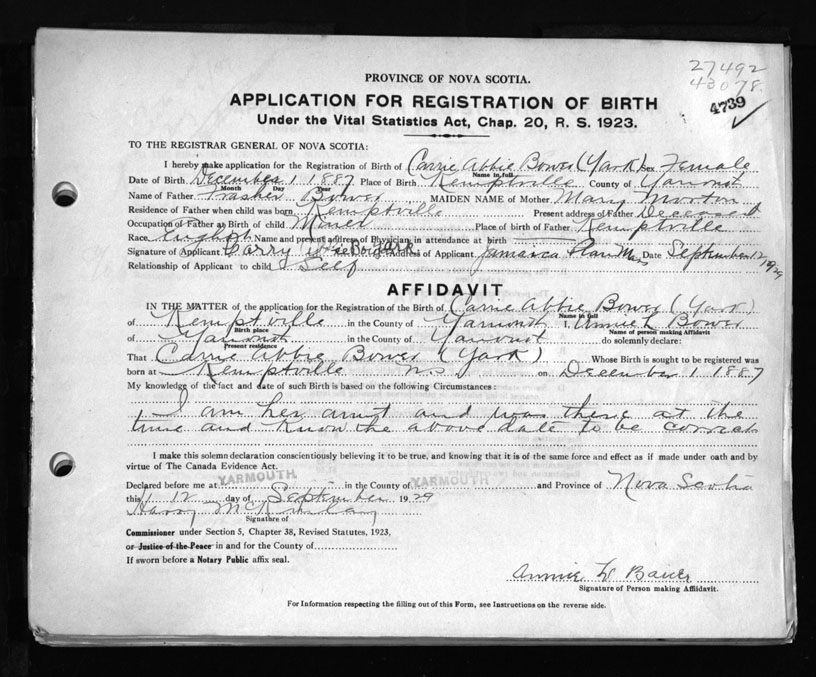 27492
43078
4739
PROVINCE OF NOVA SCOTIA.
APPLICATION FOR REGISTRATION OF BIRTH
Under the Vital Statistics Act, Chap. 20, R. S. 1923.
TO THE REGISTRAR GENERAL OF NOVA SCOTIA:
I hereby make application for the Registration of Birth of Carrie Abbie Bower (York) Sex Female
Name in full
Date of Birth December 1 1887 Place of Birth Kemptville County of Yarmouth
Month Day Year
Name of Father Bower MAIDEN NAME of Mother Mary Morton
Residence of Father when child was born Kemptville Present address of Father Deceased
Occupation of Father at Birth of child Miner Place of birth of Father Kemptville
Race English Name and present address of Physician in attendance at birth
Signature of Applicant Address of Applicant Jamaica Plain Mass Date September 12 1929
Relationship of Applicant to child Self
AFFIDAVIT
IN THE MATTER of the application for the Registration of the Birth of Carrie Abbie Bower (York)
Name in full
of Kemptville in the County of Yarmouth I, Annie Bower
Birth place Name of person making Affidavit
of Yarmouth in the County of Yarmouth do solemnly declare:
Present residence
That Carrie Abbie Bower (York) Whose Birth is sought to be registered was
born at Kemptville N.S on December 1 1887
My knowledge of the fact and date of such Birth is based on the following Circumstances:
I am her aunt and was there at the
time and know the above date to be correct
I make this solemn declaration conscientiously believing it to be true, and knowing that it is of the same force and effect as if made under oath and by
virtue of The Canada Evidence Act.
Declared before me at YARMOUTH in the County of YARMOUTH and Province of Nova Scotia
this 12 day of September 1929
Harry McKinlay
Signature of
Commissioner under Section 5, Chapter 38, Revised Statutes, 1923,
or Justice of the Peace in and for the County of
If sworn before a Notary Public affix seal.
Annie Bower
Signature of Person making Affidavit.
For Information respecting the filling out of this Form, see Instructions on the reverse side.